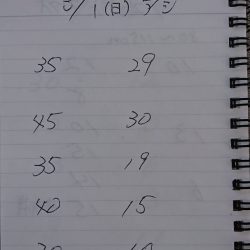 /1(日)
35 29
45 30
35 19
40 15